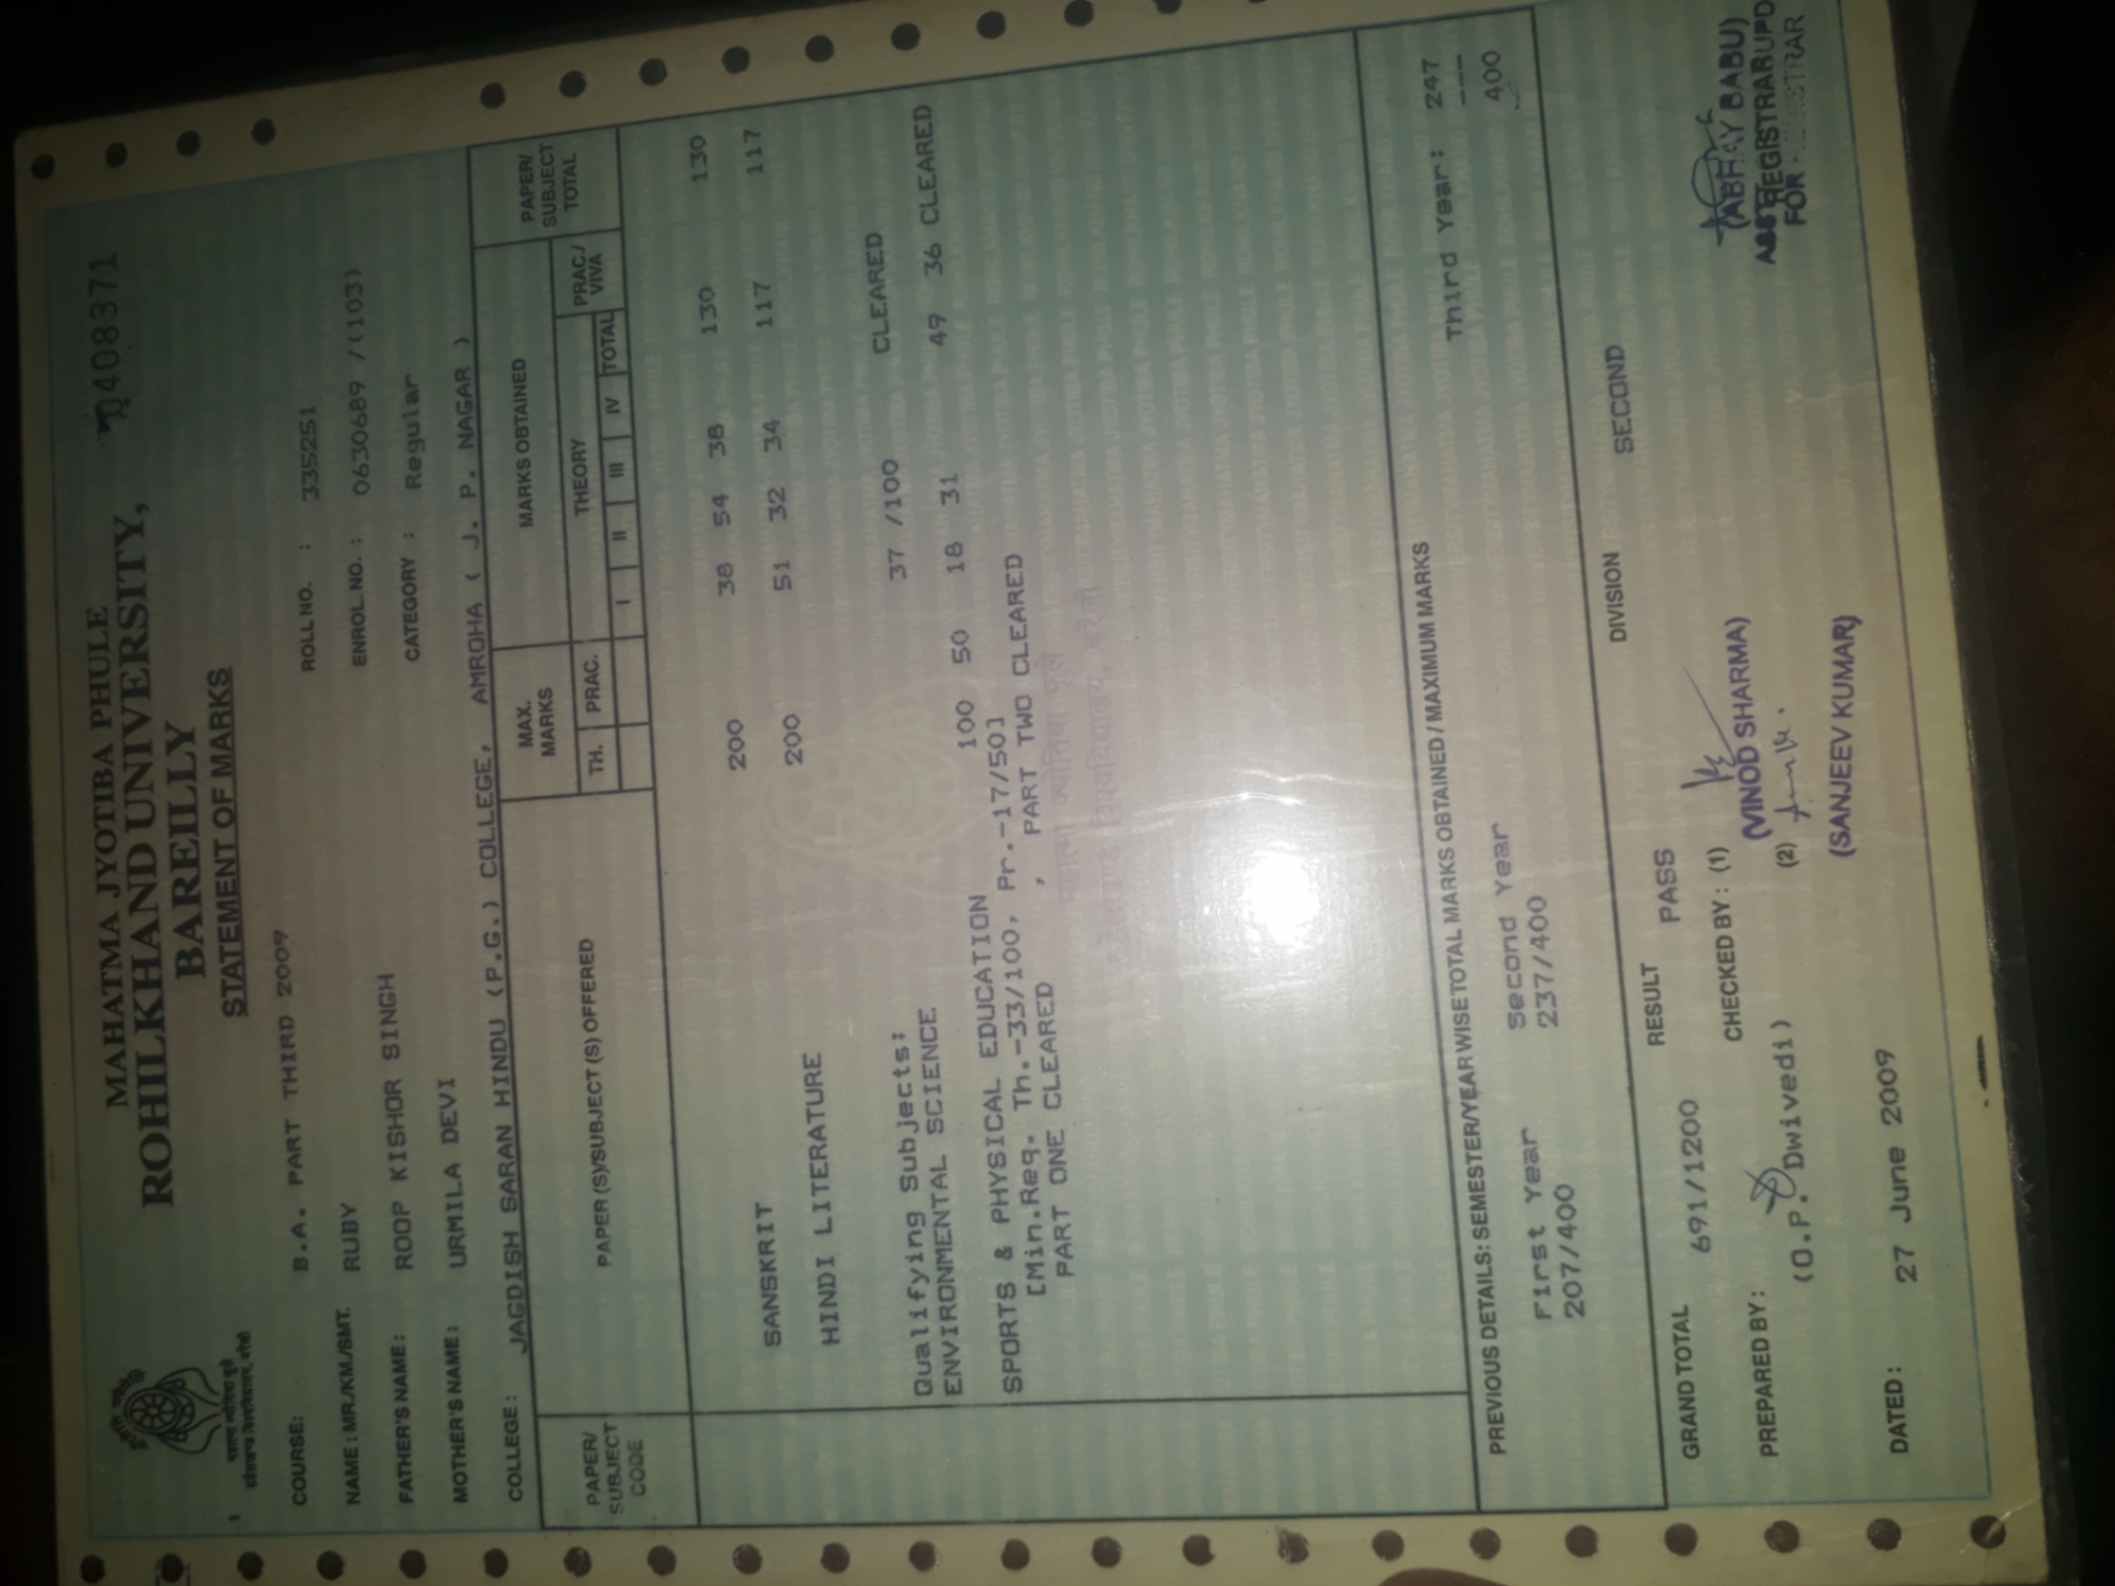 पू0408371
MAHATMA JYOTIBA PHULE
ROHILKHAND UNIVERSITY,
BAREILLY
STATEMENT OF MARKS
COURSE: B.A. PART THIRD 2009 ROLL NO. : 335251
NAME : MR./KM./SMT. RUBY ENROL.NO. : 0630689 /(103)
FATHER'S NAME : ROOP KISHOR SINGH CATEGORY : Regular
MOTHER'S NAME : URMILA DEVI
COLLEGE : JAGDISH SARAN HINDU (P.G.) COLLEGE, AMROHA ( J. P. NAGAR )
PAPER/ SUBJECT CODE PAPER (S)/SUBJECT (S) OFFERED MAX. MARKS MARKS OBTAINED PAPER/ SUBJECT TOTAL
TH. PRAC. THEORY PRAC./ VIVA
I II III IV TOTAL
SANSKRIT 200 38 54 38 130 130
HINDI LITERATURE 200 51 32 34 117 117
Qualifying Subjects:
ENVIRONMENTAL SCIENCE 37 /100 CLEARED
SPORTS & PHYSICAL EDUCATION 100 50 18 31 49 36 CLEARED
[Min.Req. Th.-33/100, Pr.-17/50]
PART ONE CLEARED , PART TWO CLEARED
PREVIOUS DETAILS: SEMESTER/YEAR WISE TOTAL MARKS OBTAINED / MAXIMUM MARKS
First Year Second Year Third Year: 247
207/400 237/400 ---
400
GRAND TOTAL 691/1200 RESULT PASS DIVISION SECOND
PREPARED BY : CHECKED BY : (1)
(O.P. Dwivedi) (VINOD SHARMA) (ABHAY BABU)
(2)
(SANJEEV KUMAR) FOR
DATED : 27 June 2009